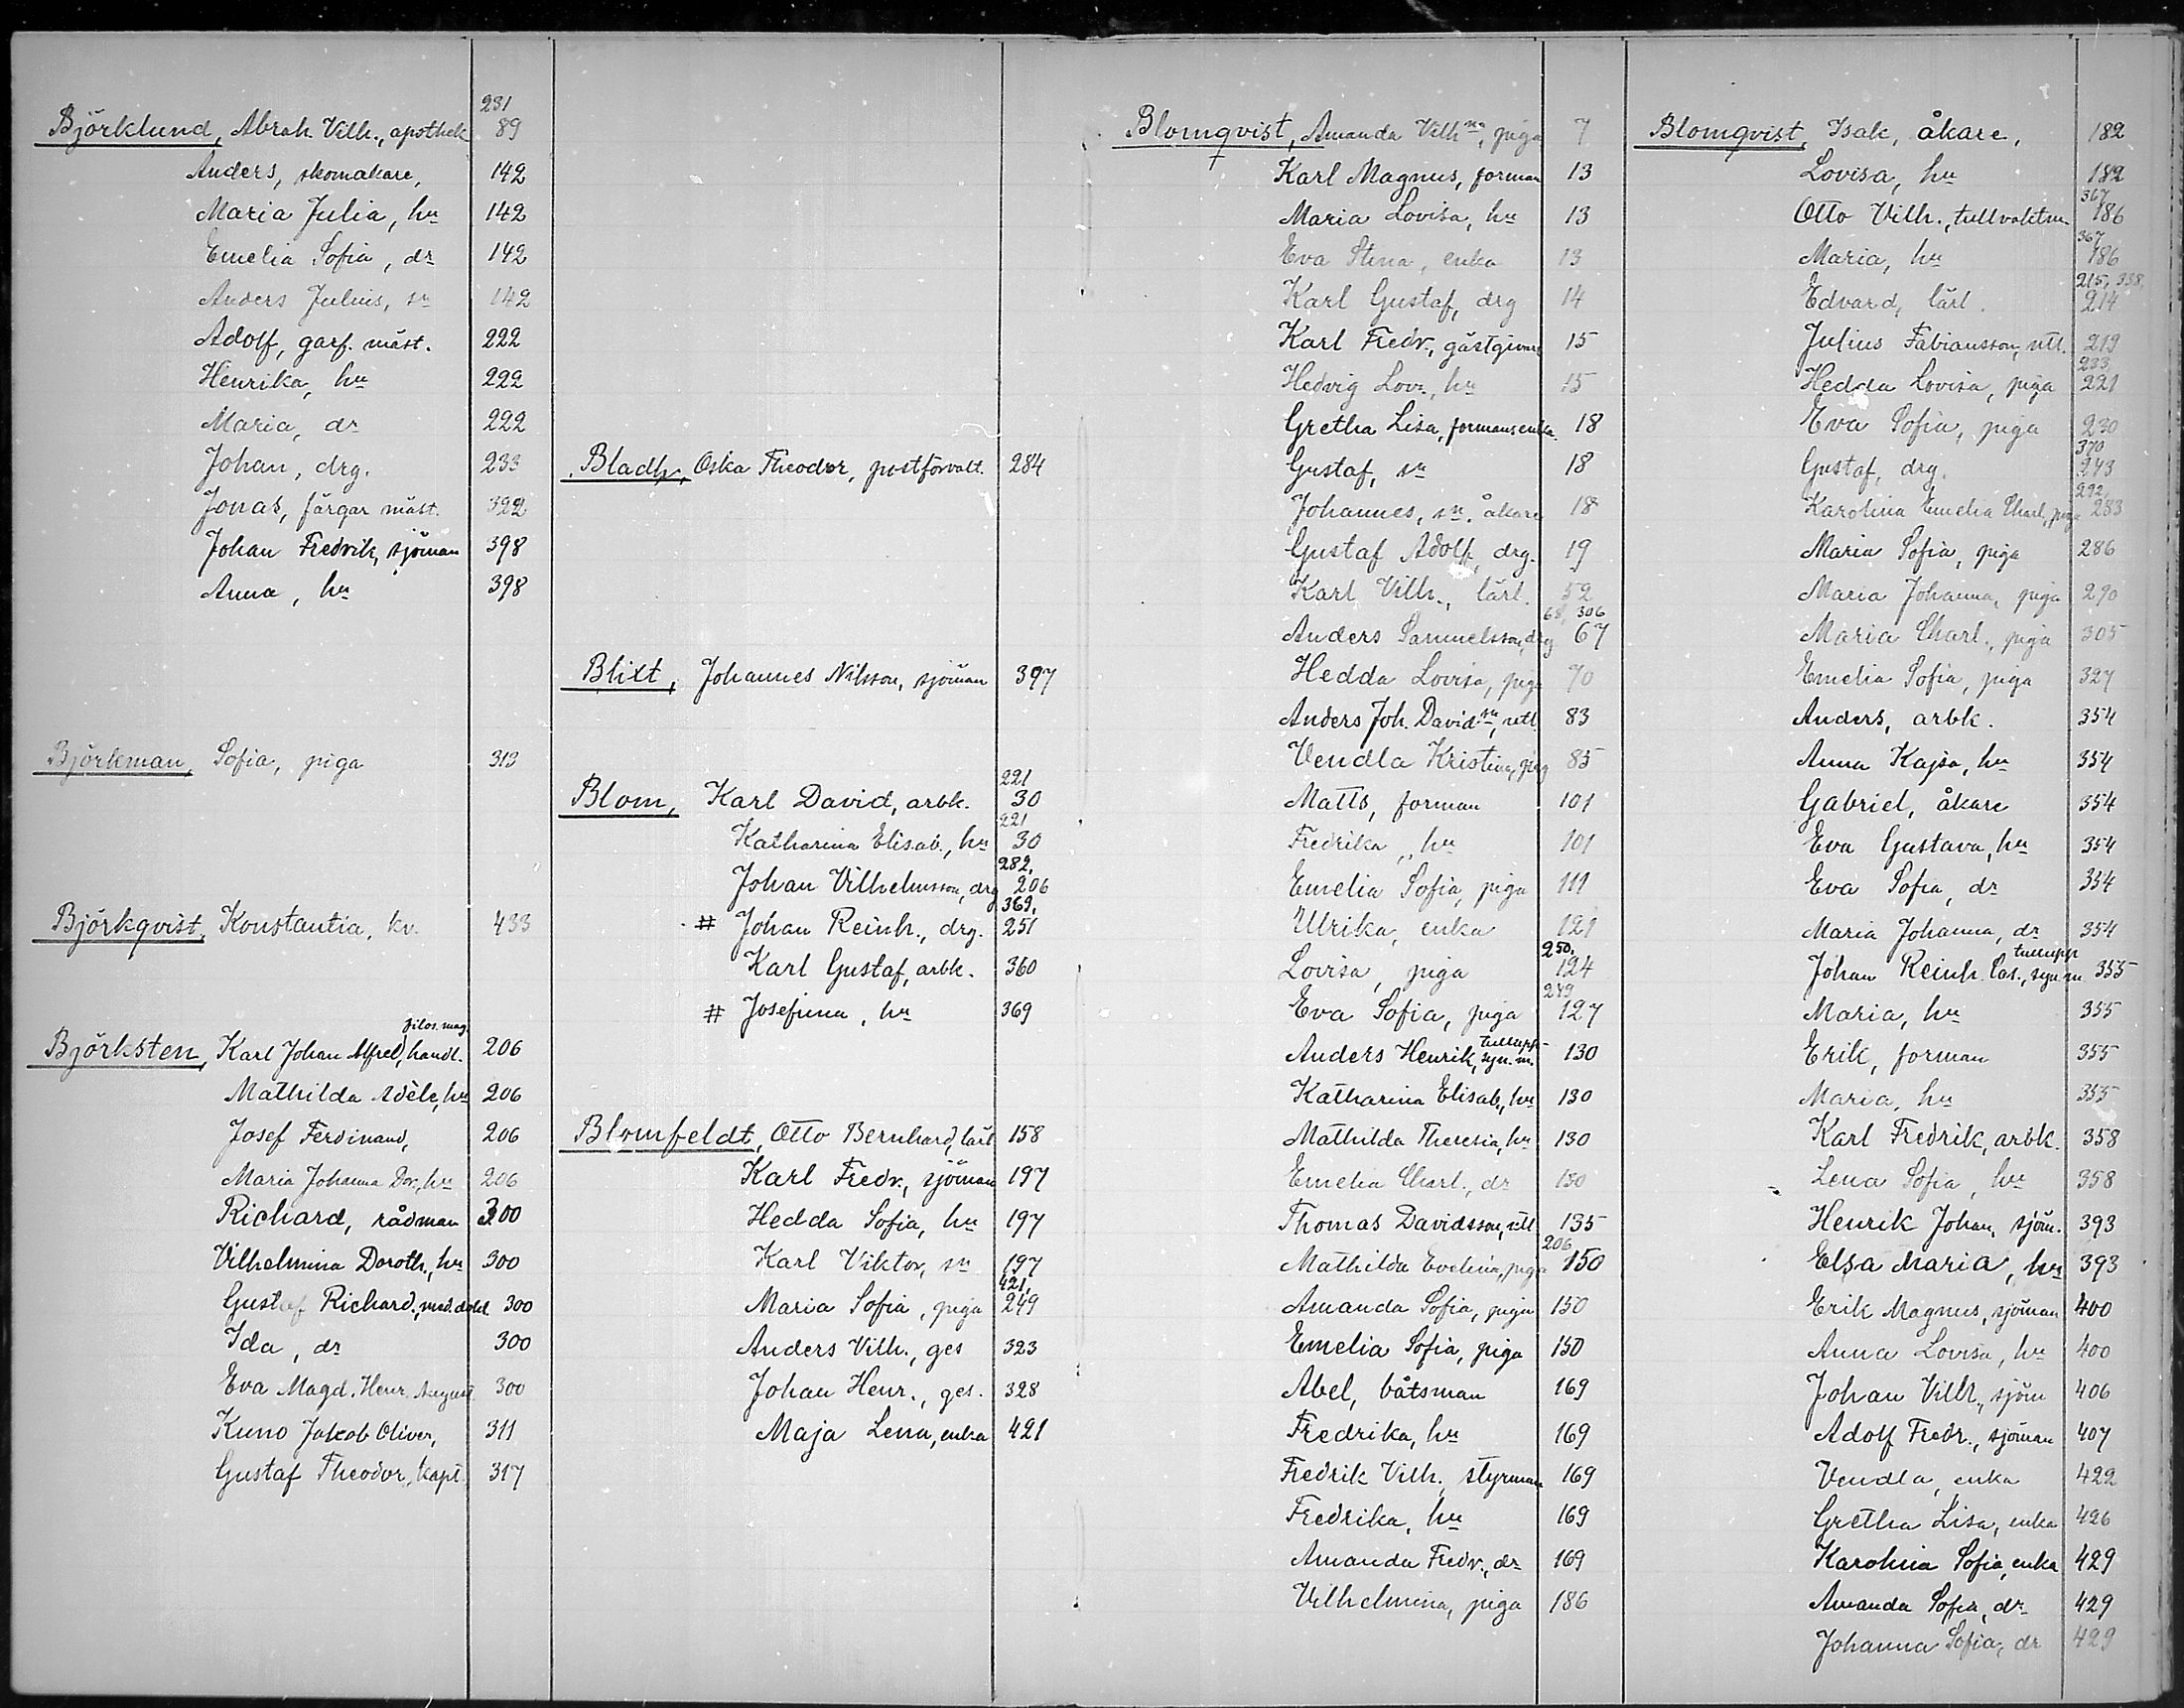 231
Björklund, Abrah. Vilh., apothek 89
Anders, skomakare, 142
Maria Julia, hu 142
Emelia Sofia, dr 142
Anders Julius, sn 142
Adolf, garf. mäst. 222
Henrika, hu 222
Maria, dr 222
Johan, drg. 233
Jonas, färgar mäst. 322
Johan Fredrik, sjöman 398
Anna, hu 398
Björkman, Sofia, piga 313
Björkqvist, Konstantia, kv. 433
filos. mag.
Björksten, Karl Johan Alfred, handl. 206
Mathilda Adèle, hu 206
Josef Ferdinand, 206
Maria Johanna Dor., hu 206
Richard, rådman 300
Vilhelmina Doroth., hu 300
Gustaf Richard, med. 300
Ida, dr 300
Eva Magd. Henr. August. 300
Kuno Jakob Oliver, 311
Gustaf Theodor, kapt. 317
Bladh, Oska Theodor, postförvalt. 284
Blixt, Johannes Nilsson, sjöman 397
221
Blom, Karl David, arbk. 30
221
Katharina Elisab., hu 30
282,
Johan Vilhelmsson, drg 206
369,
# Johan Reinh., drg. 251
Karl Gustaf, arbk. 360
# Josefina, hu 369
Blomfeldt, Otto Bernhard, lärl 158
Karl Fredr., sjöman 197
Hedda Sofia, hu 197
Karl Viktor, sn 197
421,
Maria Sofia, piga 249
Anders Vilh., ges 323
Johan Henr., ges. 328
Maja Lena, enka 421
Blomqvist, Amanda Vilhna, piga 7
Karl Magnus, forman 13
Maria Lovisa, hu 13
Eva Stina, enka 13
Karl Gustaf, drg 14
Karl Fredr., gästgivare 15
Hedvig Lov., hu 15
Gretha Lisa, formansenka. 18
Gustaf, sn 18
Johannes, sn. åkare 18
Gustaf Adolf, drg. 19
Karl Vilh., lärl. 52
68, 306
Anders Samuelsson, drg 67
Hedda Lovisa, piga 70
Anders Joh. Davidsn, utl. 83
Vendla Kristina, pig 85
Matts, forman 101
Fredrika, hu 101
Emelia Sofia, piga 111
Ulrika, enka 121
250,
Lovisa, piga 124
249
Eva Sofia, piga 127
tullupp-
Anders Henrik, syn. m. 130
Katharina Elisab., hu 130
Mathilda Theresia, hu 130
Emelia Charl., dr 130
Thomas Davidsson, utl 135
206
Mathilda Evelina, piga 150
Amanda Sofia, piga 150
Emelia Sofia, piga 150
Abel, båtsman 169
Fredrika, hu 169
Fredrik Vilh., styrman 169
Fredrika, hu 169
Amanda Fredr., dr 169
Vilhelmina, piga 186
Blomqvist, Isak, åkare, 182
Lovisa, hu 182
367
Otto Vilh., tullvaktm 186
367
Maria, hu 186
215, 338,
Edvard, lärl. 214
Julius Fabiansson, utl. 219
233
Hedda Lovisa, piga 221
Eva Sofia, piga 230
370
Gustaf, drg. 243
292,
Karolina Emelia Charl., piga 283
Maria Sofia, piga 286
Maria Johanna, piga 290
Maria Charl., piga 305
Emelia Sofia, piga 327
Anders, arbk. 354
Anna Kajsa, hu 354
Gabriel, åkare 354
Eva Gustava, hu 354
Eva Sofia, dr 354
Maria Johanna, dr 354
tullupp
Johan Reinh. Cas., syn. m 355
Maria, hu 355
Erik, forman 355
Maria, hu 355
Karl Fredrik, arbk. 358
Lena Sofia, hu 358
Henrik Johan, sjöm. 393
Elsa Maria, hu 393
Erik Magnus, sjöman 400
Anna Lovisa, hu 400
Johan Vilh., sjöm 406
Adolf Fredr., sjöman 407
Vendla, enka 422
Gretha Lisa, enka 426
Karolina Sofia, enka 429
Amanda Sofia, dr 429
Johanna Sofia, dr 429